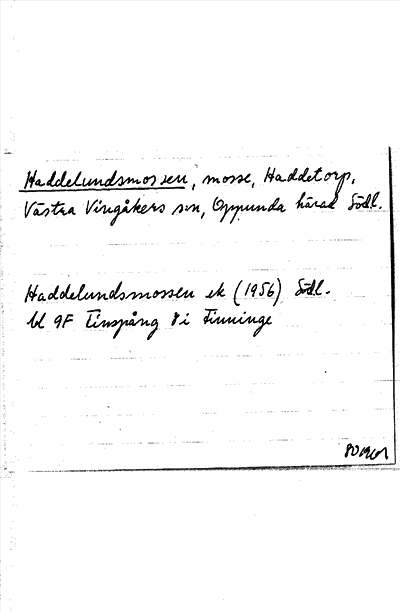 Haddelundsmossen, mosse, Haddetorp,
Västra Vingåkers sn, Oppunda härad Södl.
Haddelundsmossen ek (1956) Södl.
bl 9F Finspång 8i Finninge